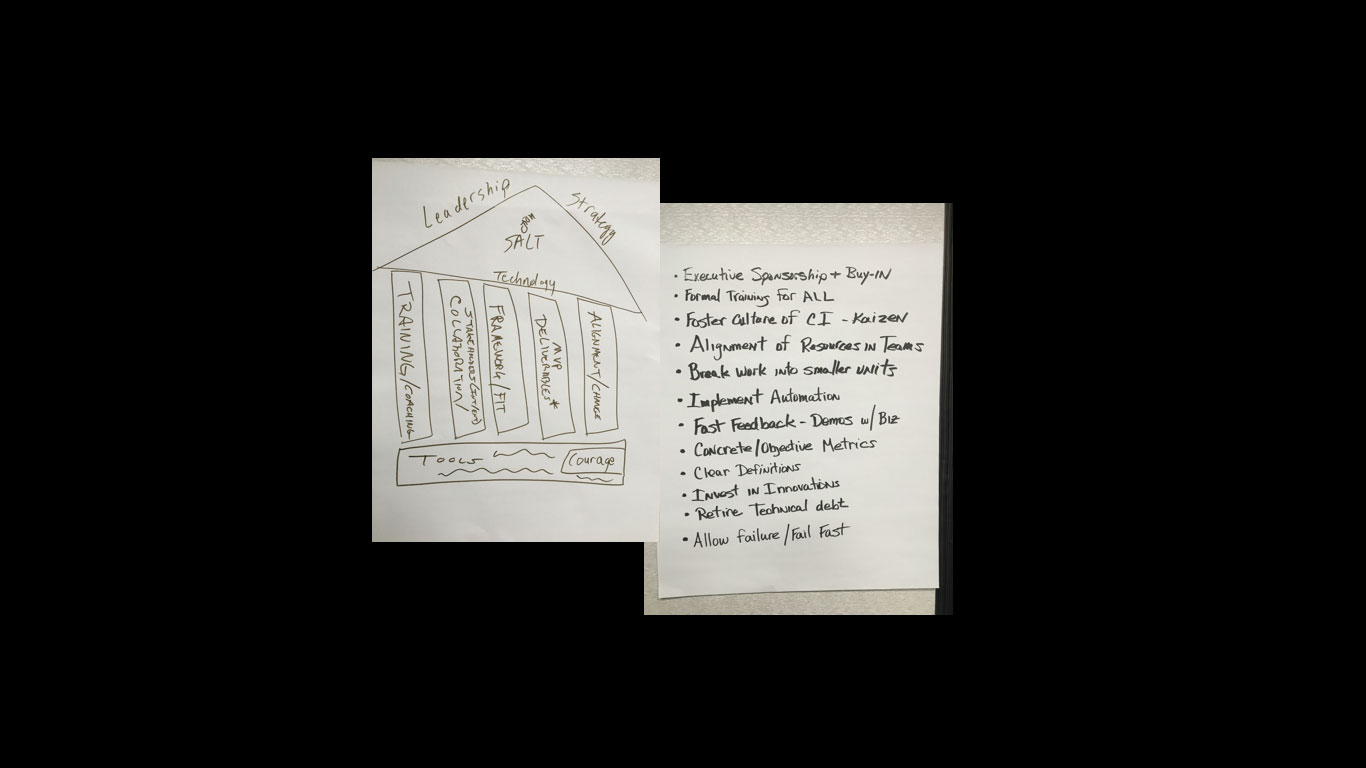 Leadership
Strategy
SALT
Technology
TRAINING/COACHING
STAKEHOLDERS (INT/EXT)
COLLABORATION/
FRAMEWORK/FIT
MVP
DELIVERABLES*
ALIGNMENT/CHANGE
TOOLS
Courage
• Executive Sponsorship + Buy-IN
• Formal Training for ALL
• Foster Culture of CI - Kaizen
• Alignment of Resources in Teams
• Break Work into smaller units
• Implement Automation
• Fast Feedback - Demos w/ Biz
• Concrete/Objective Metrics
• Clear Definitions
• Invest in Innovations
• Retire Technical debt
• Allow failure/Fail Fast